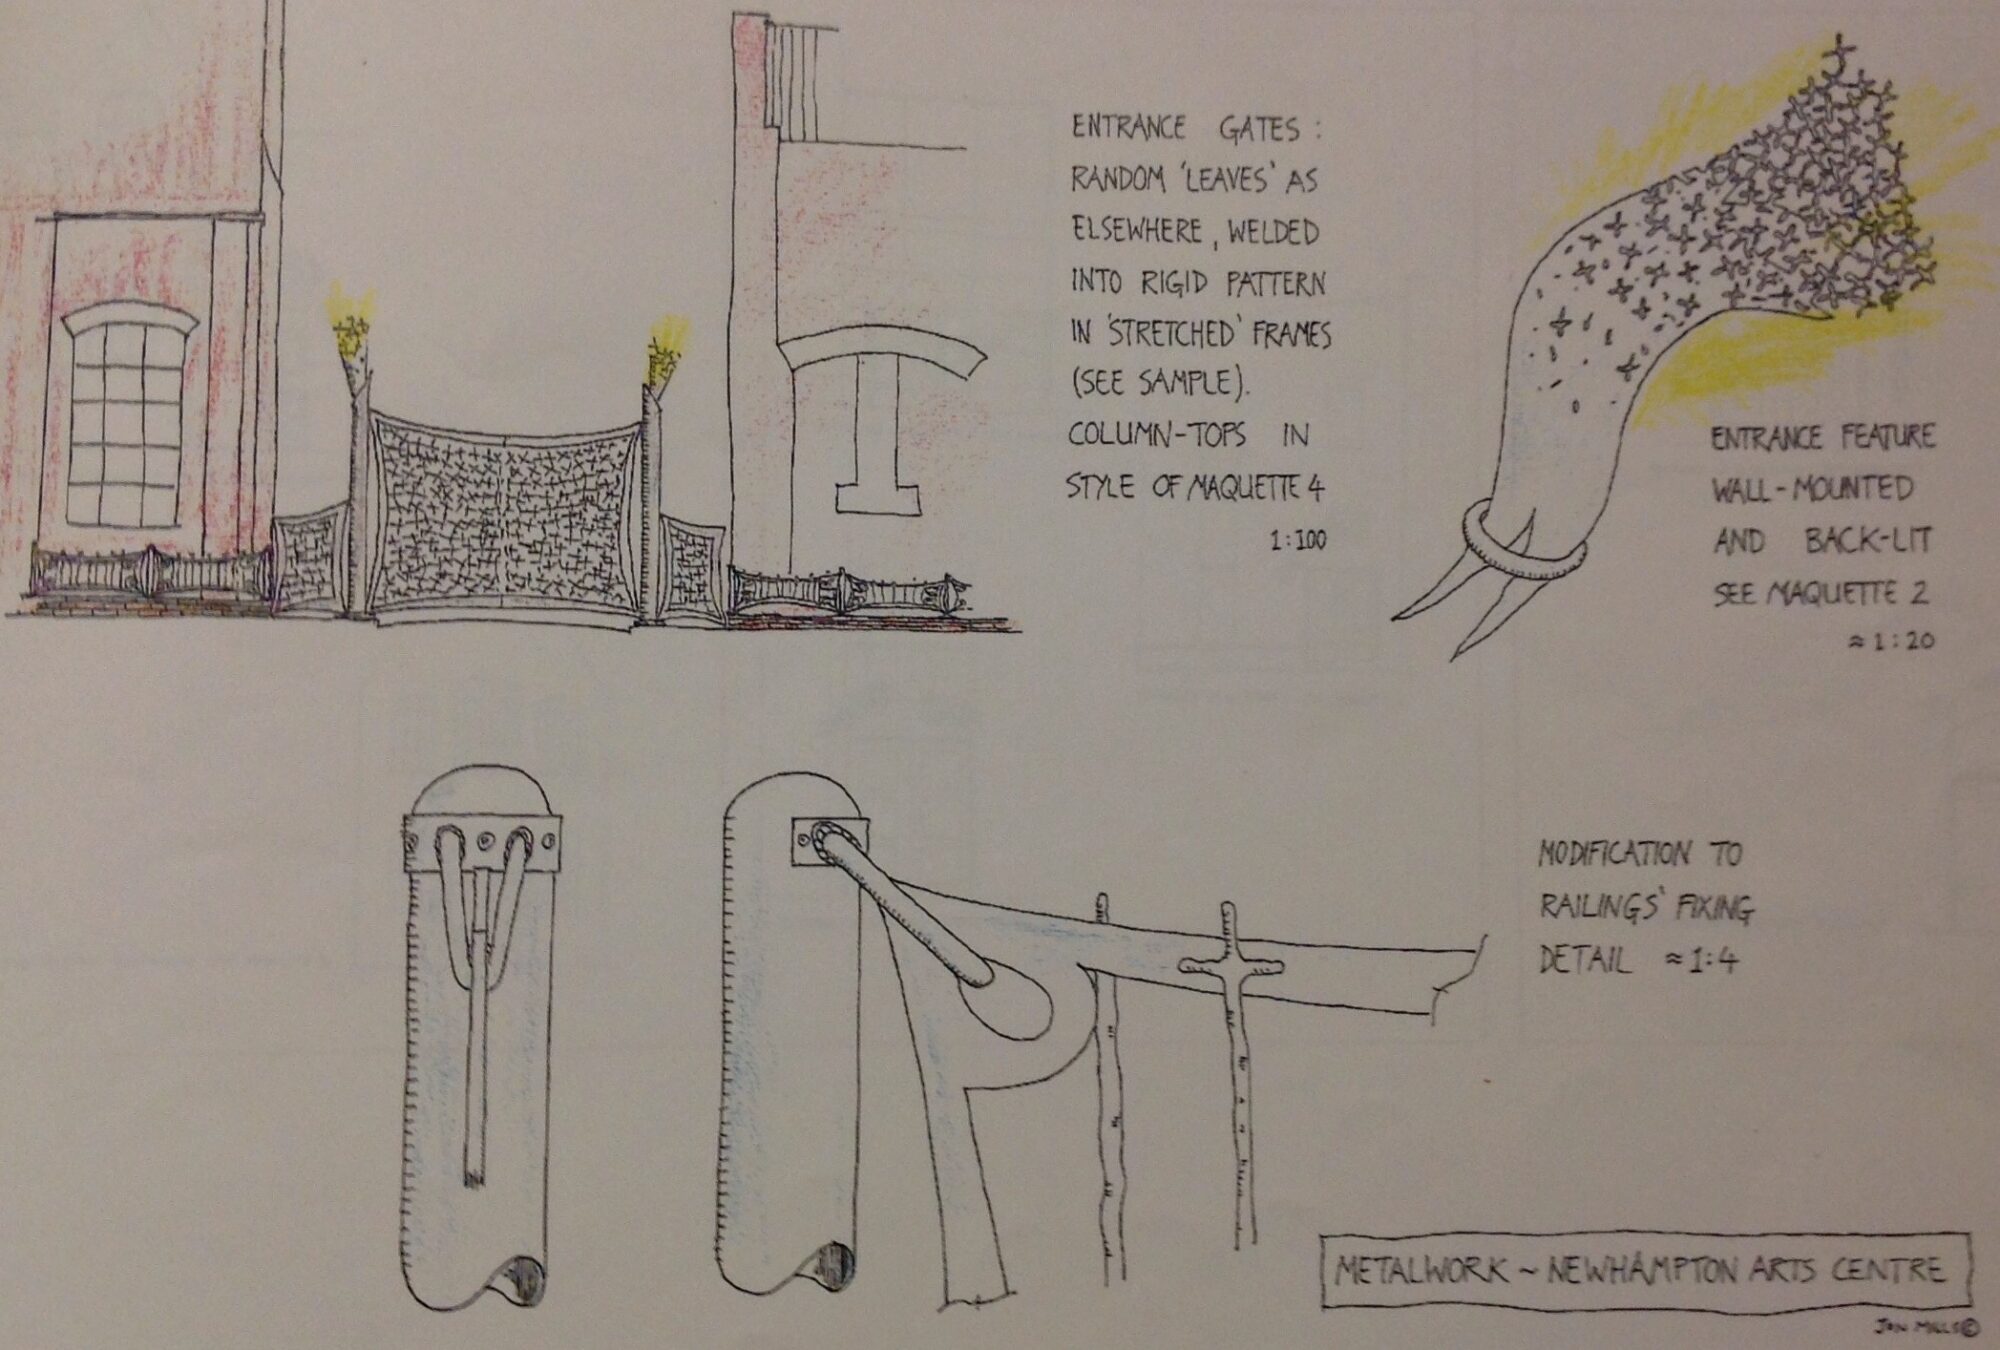 ENTRANCE GATES :
RANDOM 'LEAVES' AS
ELSEWHERE, WELDED
INTO RIGID PATTERN
IN 'STRETCHED' FRAMES
(SEE SAMPLE).
COLUMN-TOPS IN
STYLE OF MAQUETTE 4
1:100
ENTRANCE FEATURE
WALL-MOUNTED
AND BACK-LIT
SEE MAQUETTE 2
≈ 1:20
MODIFICATION TO
RAILINGS' FIXING
DETAIL ≈ 1:4
METALWORK ~ NEWHAMPTON ARTS CENTRE
JON MILLS ©